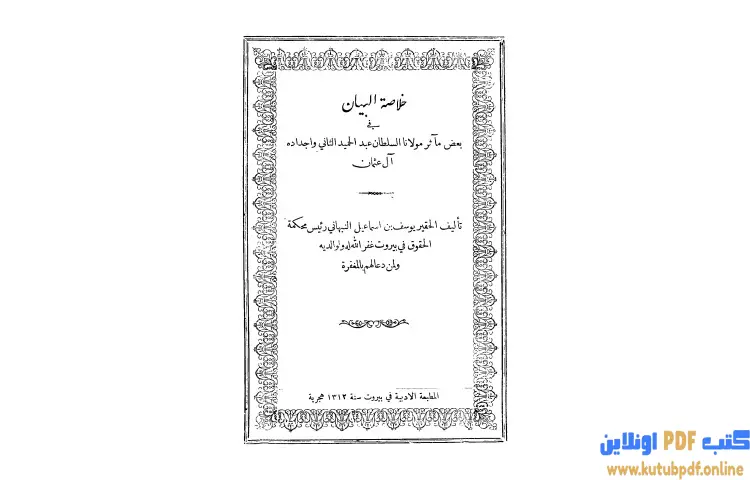 خلاصة البيان
في
بعض مآثر مولانا السلطان عبد الحميد الثاني واجداده
آل عثمان
تأليف الحقير يوسف بن اسماعيل النبهاني رئيس محكمة
الحقوق في بيروت غفر الله له ولوالديه
ولمن دعا لهم بالمغفرة
المطبعة الادبية في بيروت سنة ١٣١٢ هجرية
كتب PDF اونلاين
www.kutubpdf.online